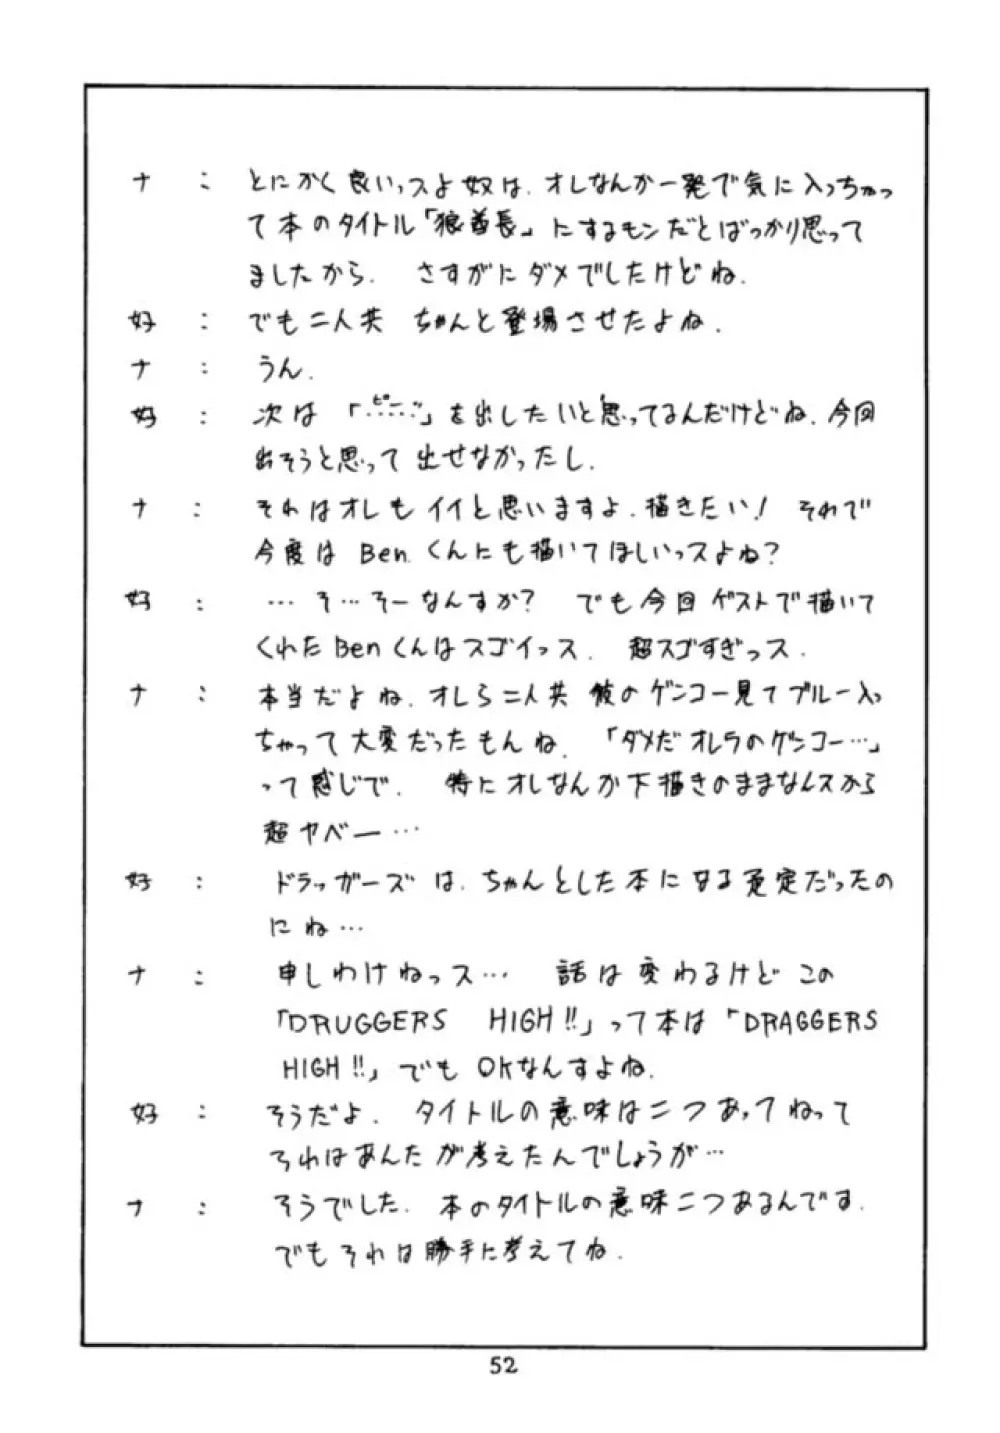 ナ : とにかく良いっスよ奴は.オレなんか一発で気に入っちゃっ
て本のタイトル「狼酋長」にするモンだとばっかり思って
ましたから. さすがにダメでしたけどね.
好 : でも二人共 ちゃんと登場させたよね.
ナ : うん.
好 : 次は 「ピー……」を出したいと思ってるんだけどね.今回
出そうと思って出せなかったし.
ナ : それはオレもイイと思いますよ.描きたい! それで
今度は Ben.くんにも描いてほしいっスよね?
好 : …そ…そーなんすか? でも今回ゲストで描いて
くれたBenくんはスゴイっス. 超スゴすぎっス.
ナ : 本当だよね.オレら二人共 彼のゲンコー見てブルー入っ
ちゃって大変だったもんね.「ダメだオレラのゲンコー…」
って感じで. 特にオレなんか下描きのままなんスから
超ヤベー…
好 : ドラッガーズは.ちゃんとした本になる予定だったの
にね…
ナ : 申しわけねっス… 話は変わるけどこの
「DRUGGERS HIGH!!」って本は「DRAGGERS
HIGH!!」でもOKなんすよね.
好 : そうだよ. タイトルの意味は二つあってねって
それはあんたが考えたんでしょうが…
ナ : そうでした. 本のタイトルの意味二つあるんです.
でもそれは勝手に考えてね.
52